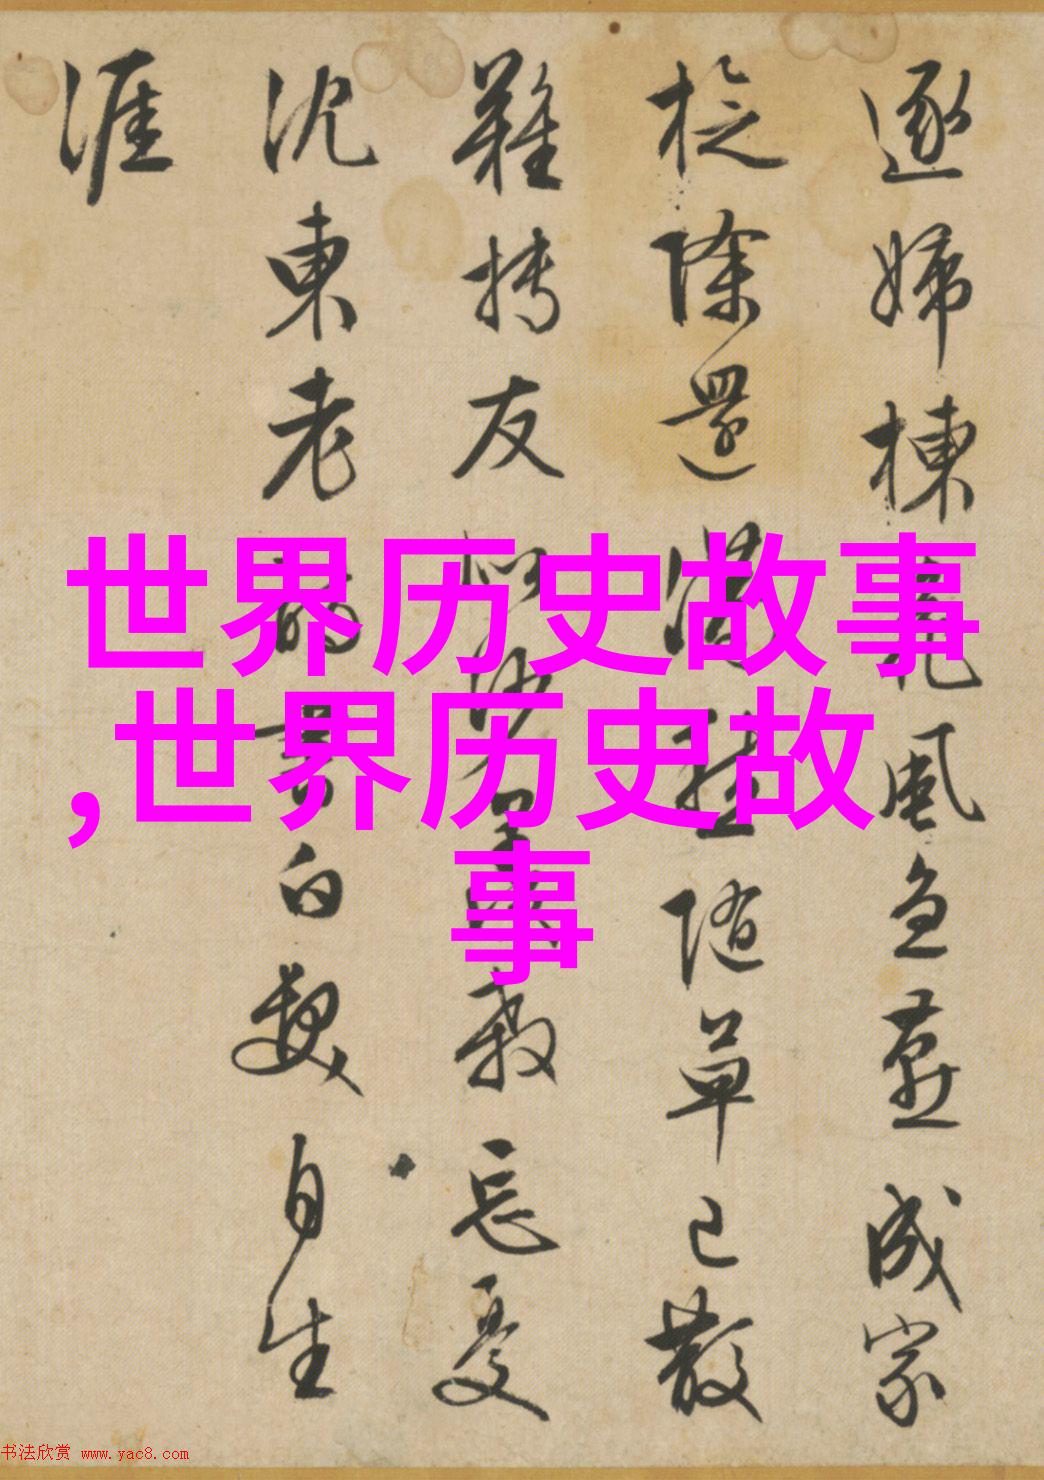 逐婦棟風成家
除還隨草已散
難摶友忘憂
沈東老白髮自生
涯
世界历史故事
,世界历史故
事
书法欣赏 www.yac8.com